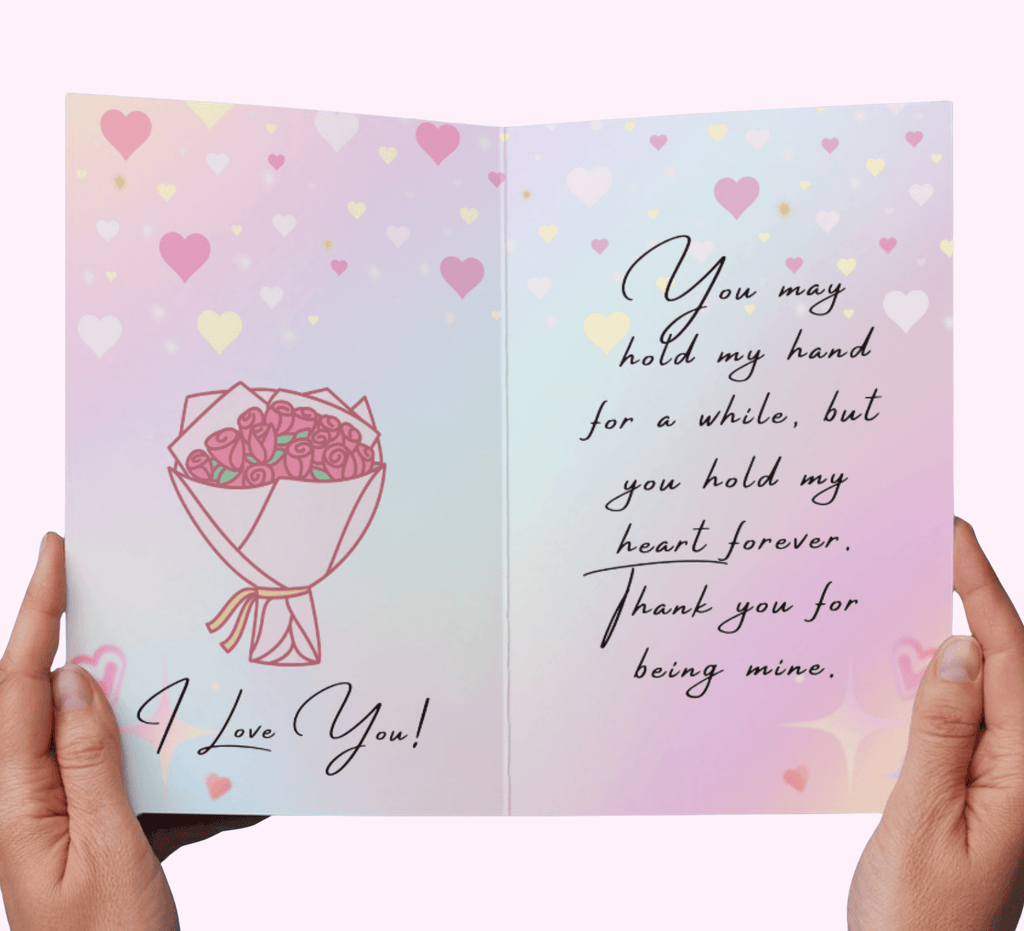 I Love You!
You may
hold my hand
for a while, but
you hold my
heart forever.
Thank you for
being mine.